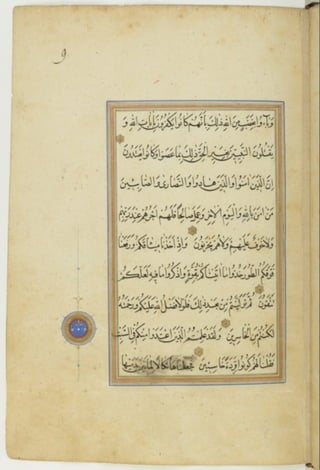 ۹
وَبَآءُو بِغَضَبٍ مِنَ اللهِ ذلِكَ بِأَنَّهُمْ كَانُوا يَكْفُرُونَ بِآيَاتِ اللهِ وَ
يَقْتُلُونَ النَّبِيِّينَ بِغَيْرِ الْحَقِّ ذلِكَ بِمَا عَصَوْا وَكَانُوا يَعْتَدُونَ
إِنَّ الَّذِينَ آمَنُوا وَالَّذِينَ هَادُوا وَالنَّصَارَى وَالصَّابِئِينَ
مَنْ آمَنَ بِاللهِ وَالْيَوْمِ الْآخِرِ وَعَمِلَ صَالِحًا فَلَهُمْ أَجْرُهُمْ عِنْدَ رَبِّهِمْ
وَلَا خَوْفٌ عَلَيْهِمْ وَلَا هُمْ يَحْزَنُونَ وَإِذْ أَخَذْنَا مِيثَاقَكُمْ وَرَفَعْنَا
فَوْقَكُمُ الطُّورَ خُذُوا مَا آتَيْنَاكُمْ بِقُوَّةٍ وَاذْكُرُوا مَا فِيهِ لَعَلَّكُمْ
تَتَّقُونَ ثُمَّ تَوَلَّيْتُمْ مِنْ بَعْدِ ذلِكَ فَلَوْلَا فَضْلُ اللهِ عَلَيْكُمْ وَرَحْمَتُهُ
لَكُنْتُمْ مِنَ الْخَاسِرِينَ وَلَقَدْ عَلِمْتُمُ الَّذِينَ اعْتَدَوْا مِنْكُمْ فِي السَّبْتِ
فَقُلْنَا لَهُمْ كُونُوا قِرَدَةً خَاسِئِينَ فَجَعَلْنَاهَا نَكَالًا لِمَا بَيْنَ يَدَيْهَا